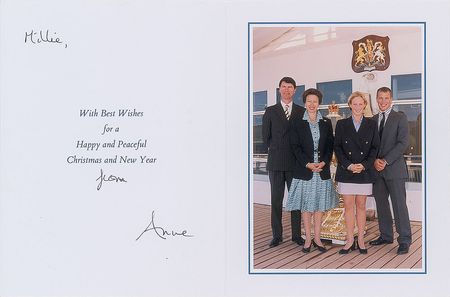 Millie,
With Best Wishes
for a
Happy and Peaceful
Christmas and New Year
from
Anne